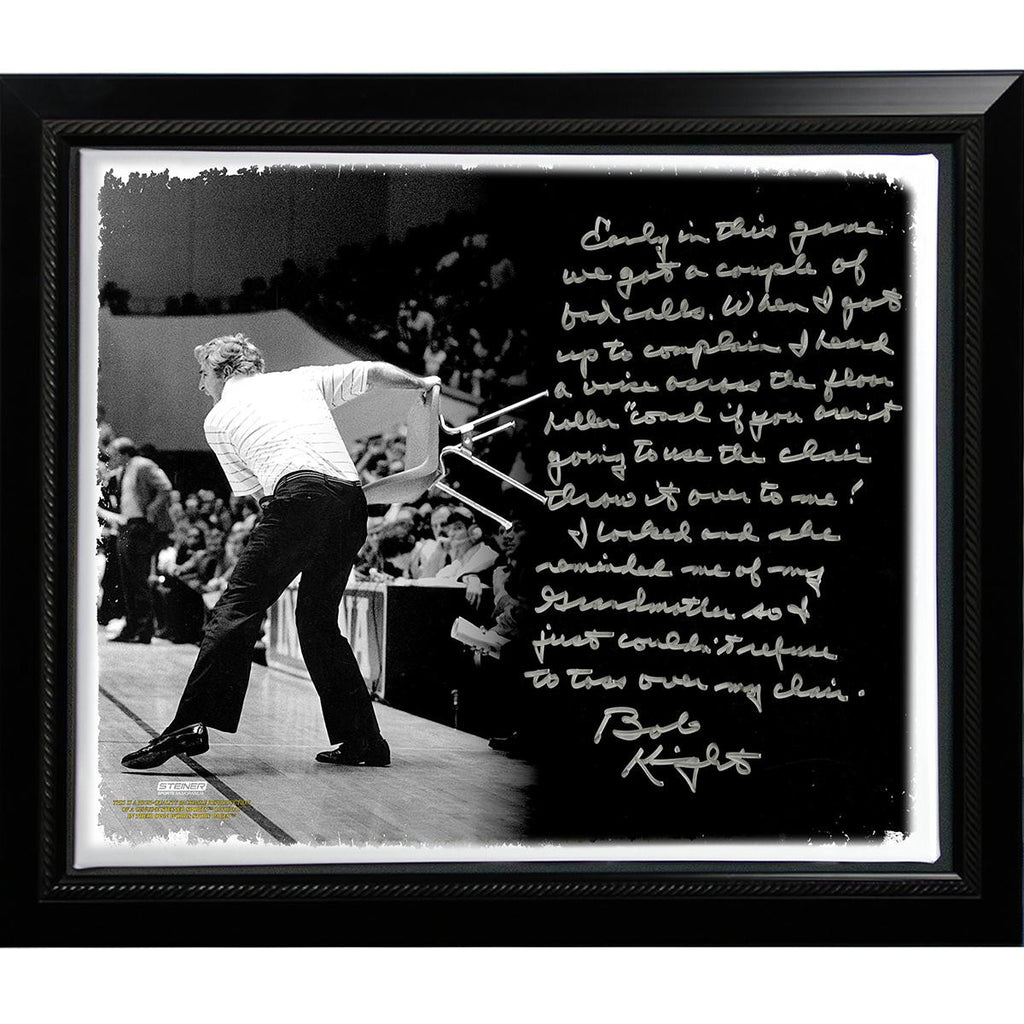 Early in this game
we got a couple of
bad calls. When I got
up to complain I heard
a voice across the floor
holler "coach if you aren't
going to use the chair
throw it over to me!
I looked and she
reminded me of my
Grandmother so I
just couldn't refuse
to toss over my chair.
Bob
Knight
STEINER
SPORTS MEMORABILIA